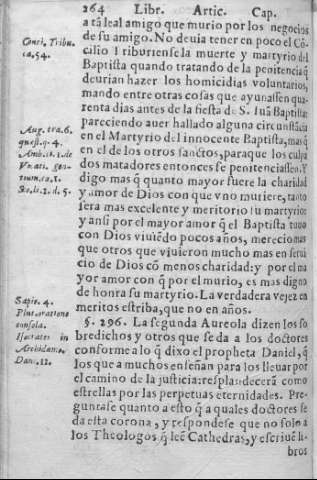 264 Libr. Artic. Cap.
a tã leal amigo que murio por los negocios
de su amigo. No deuia tener en poco el Cõ-
cilio Triburiense la muerte y martyrio del
Baptista quando tratando de la penitẽcia q̃
deurian hazer los homicidias voluntarios,
mando entre otras cosas que ayunassen qua-
renta dias antes de la fiesta de S. Iuã Baptista:
pareciendo auer hallado alguna circunstãcia
en el Martyrio del innocente Baptista, mas q̃
en el de los otros sanctos, paraque los culpa
dos matadores entonces se penitẽciassen. Y
digo mas q̃ quanto mayor fuere la charidad
y amor de Dios con que vno muriere, tanto
sera mas excelente y meritorio su martyrio:
y ansi por el mayor amor q̃ el Baptista tuuo
con Dios viuiẽdo pocos años, merecio mas
que otros que viuieron mucho mas en serui
cio de Dios cõ menos charidad: y por el ma
yor amor con q̃ por el murio, es mas digno
de honra su martyrio. La verdadera vejez en
meritos estriba, que no en años.
§. 296. La segunda Aureola dizen los so
bredichos y otros que se da a los doctores
conforme alo q̃ dixo el propheta Daniel, q̃
los que a muchos enseñan para los lleuar por
el camino de la justicia: resplãdecerã como
estrellas por las perpetuas eternidades. Pre-
guntase quanto a esto q̃ a quales doctores se
da esta corona, y respondese que no solo a
los Theologos q̃ leẽ Cathedras, y escriuẽ li-
bros
Conci. Tribu.
ca. 54.
Aug. tra. 6.
quest. q. 4.
Sapie. 4.
Plut. oratione
consola.
Isocrates in
Archidamo.
Dani. 12.